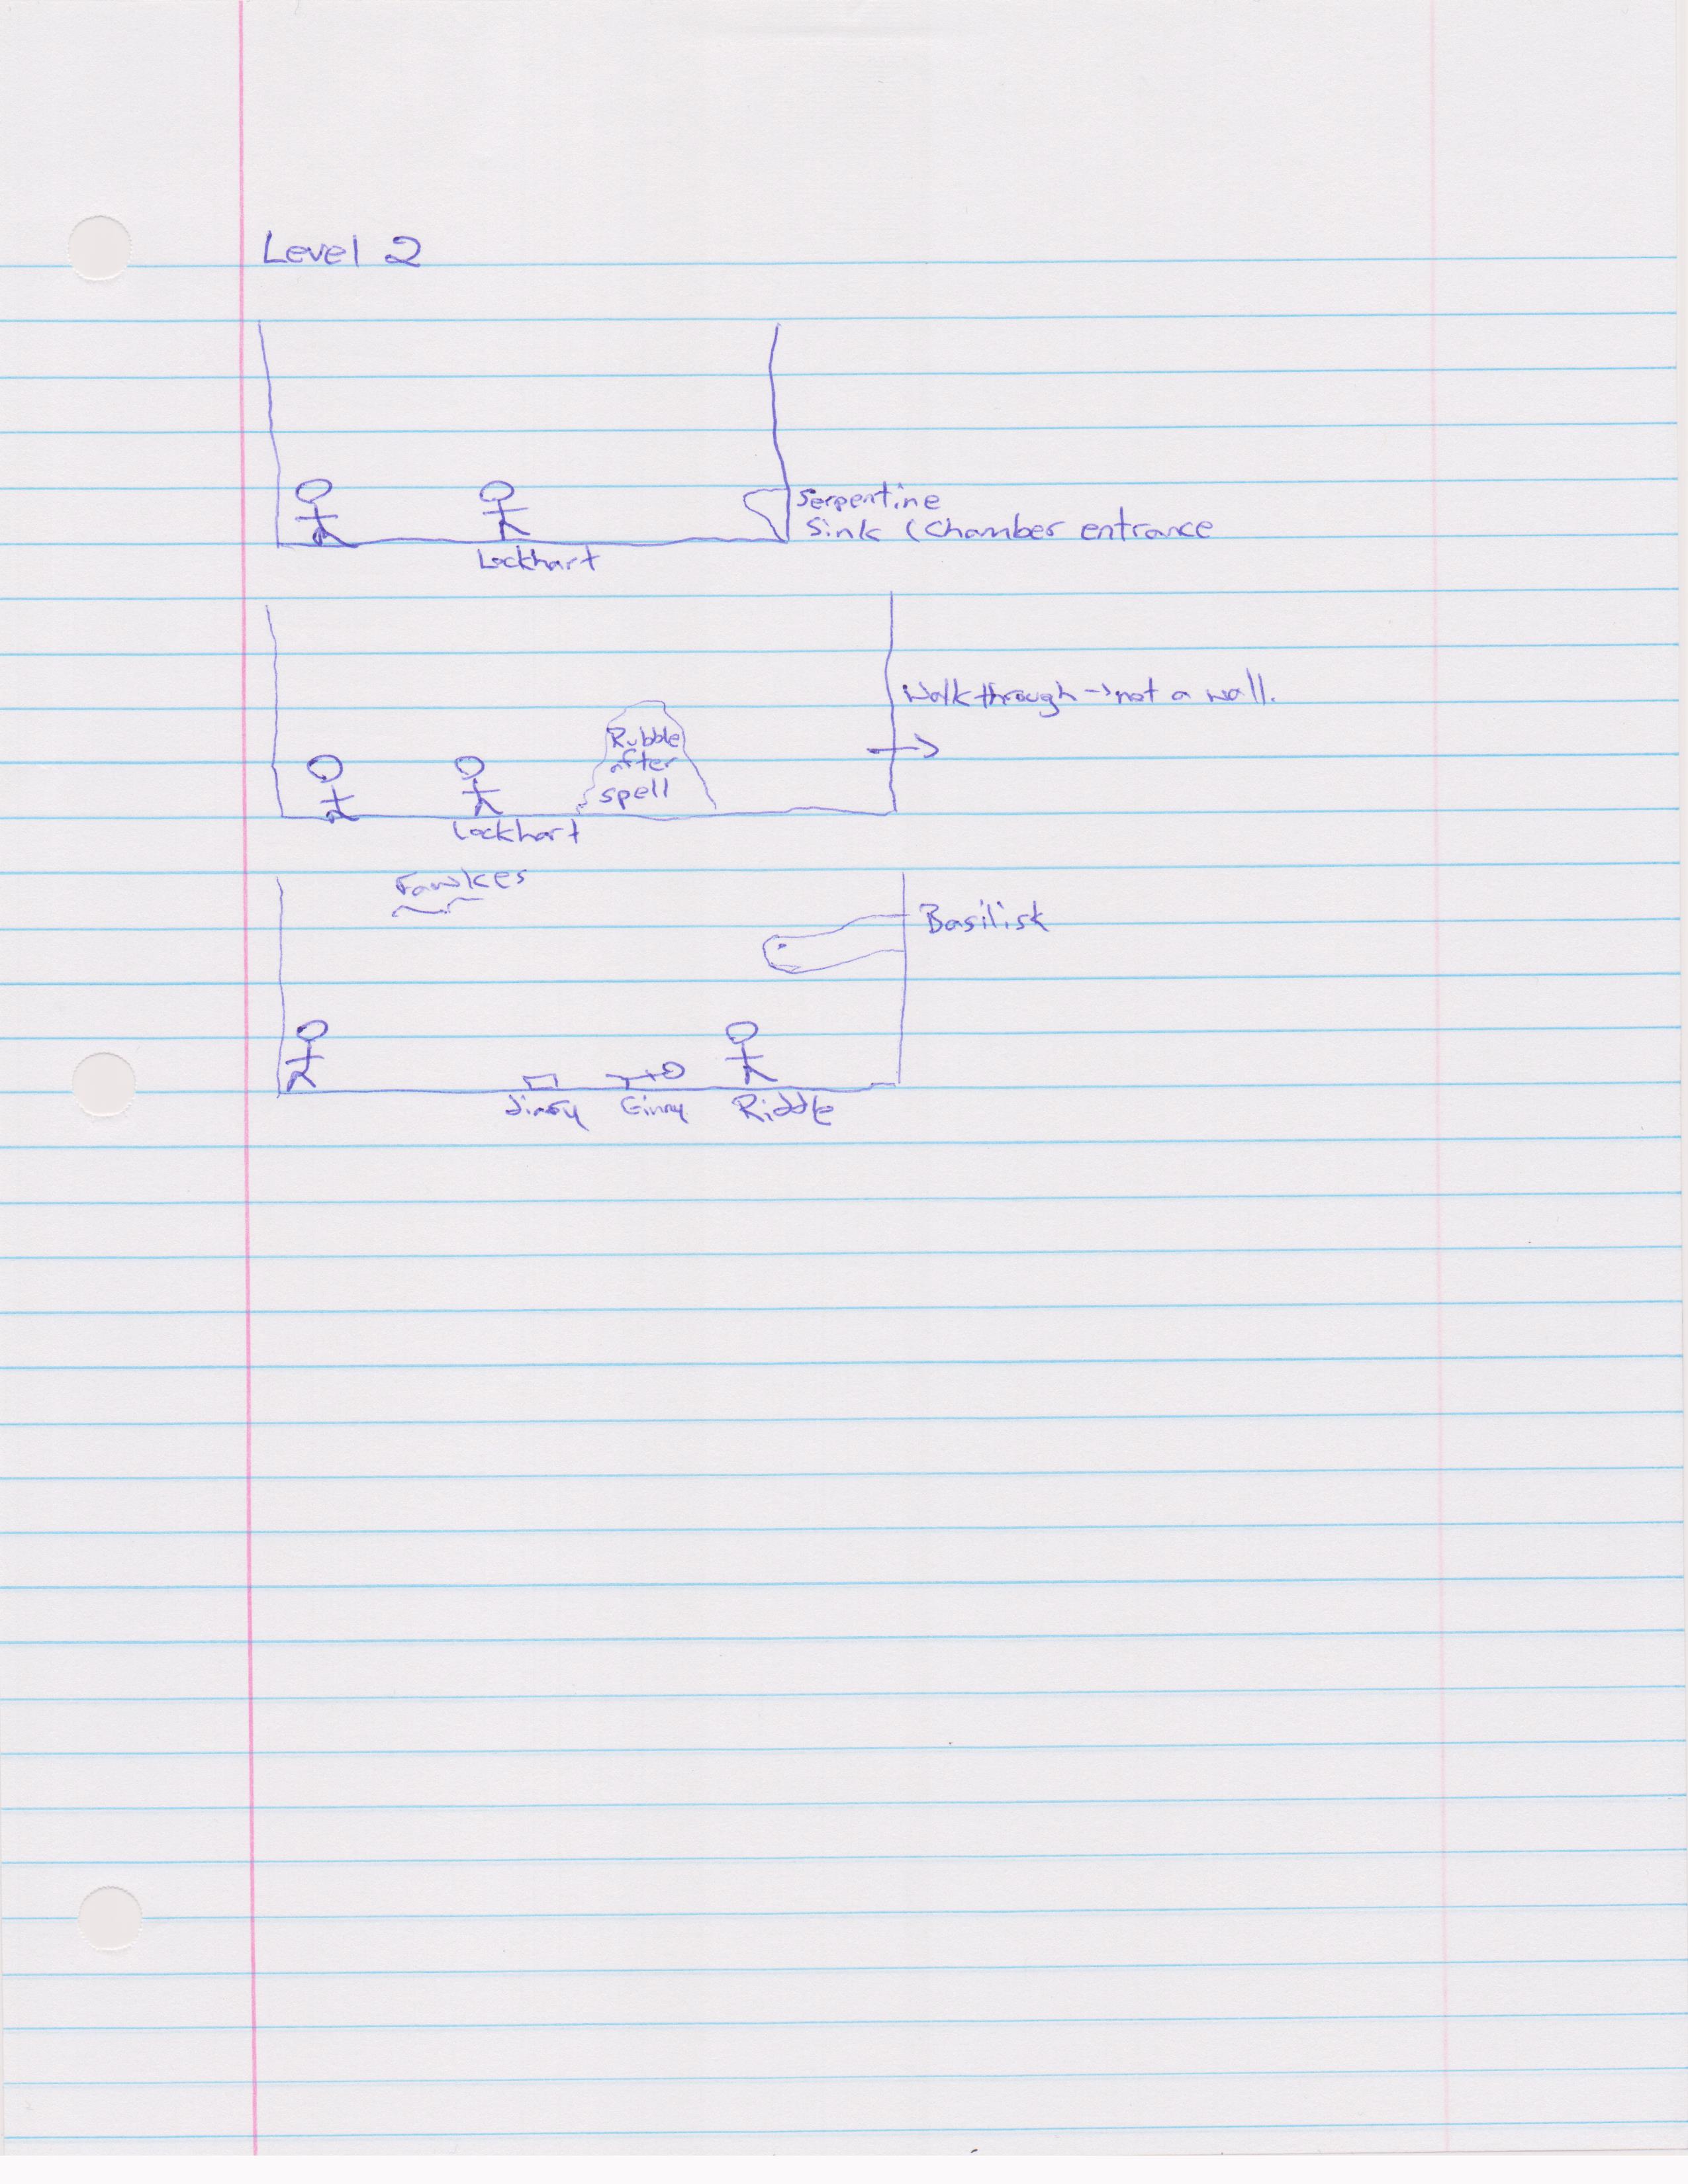 Level 2
Serpentine
Sink (Chamber entrance
Lockhart
Walkthrough → not a wall.
Rubble
after
spell
Lockhart
Fawkes
Basilisk
Ginny Riddle